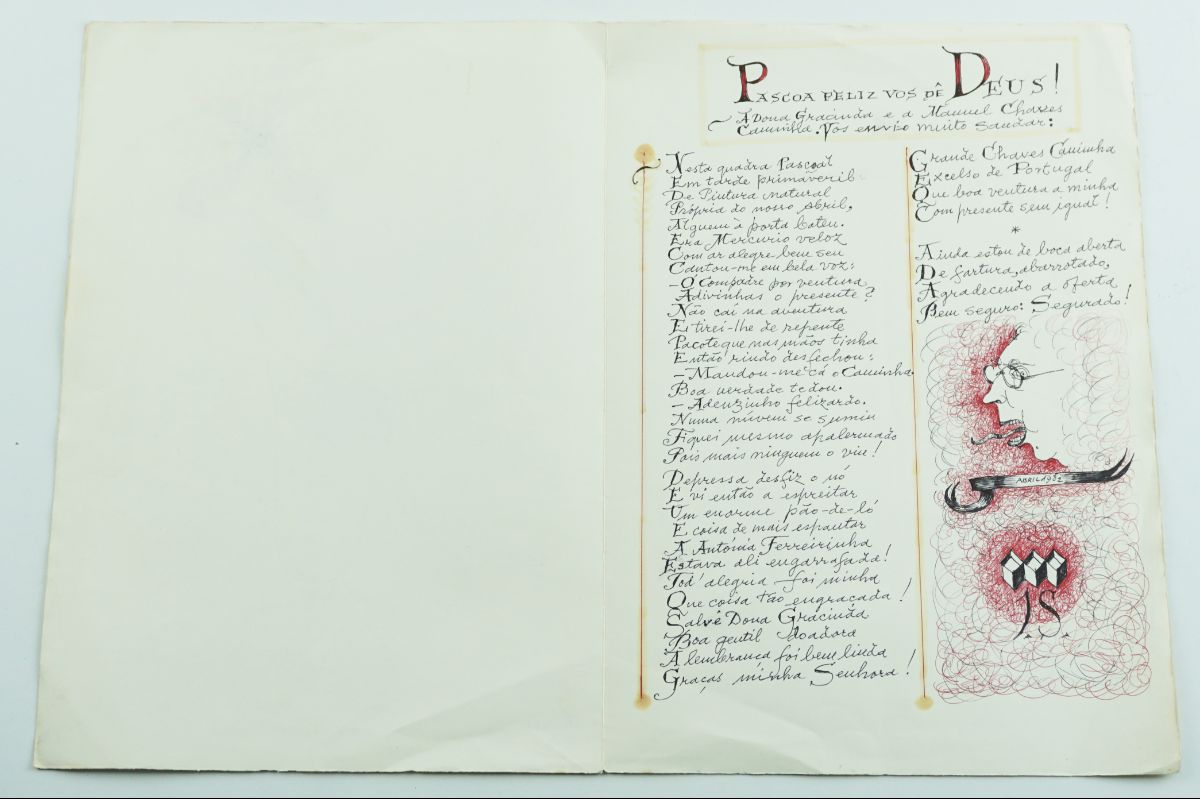 PASCOA FELIZ VOS DÊ DEUS!
À Dona Gracinda e a Manuel Chaves
Caminha. Vos envio muito saudar:
Nesta quadra Pascoal
Em tarde primaveril
De Pintura natural
Própria do nosso Abril,
Alguem à porta bateu.
Era Mercurio veloz
Com ar alegre bem seu
Cantou-me em bela voz:
- Ó Compadre por ventura
Adivinhas o presente?
Não caí na aventura
E tirei-lhe de repente
Pacote que nas mãos tinha
Então rindo desfechou:
- Mandou-me cá o Caminha.
Boa verdade te dou.
- Adeuzinho felizardo.
Numa núvem se sumiu
Fiquei mesmo apalermado
Pois mais ninguem o viu!
Depressa desfiz o nó
E vi então a espreitar
Um enorme pão-de-ló
E coisa de mais espantar
A Antónia Ferreirinha
Estava ali engarrafada!
Tod' alegria foi minha
Que coisa tão engraçada!
Salvé Dona Gracinda
Boa gentil doadora
A lembrança foi bem linda
Graças minha Senhora!
Grande Chaves Caminha
Excelso de Portugal
Que boa ventura a minha
Com presente sem igual!
*
Ainda estou de boca aberta
De fartura, abarrotado,
Agradecendo a oferta
Bem seguro: Segurado!
ABRIL 1982
I.S.